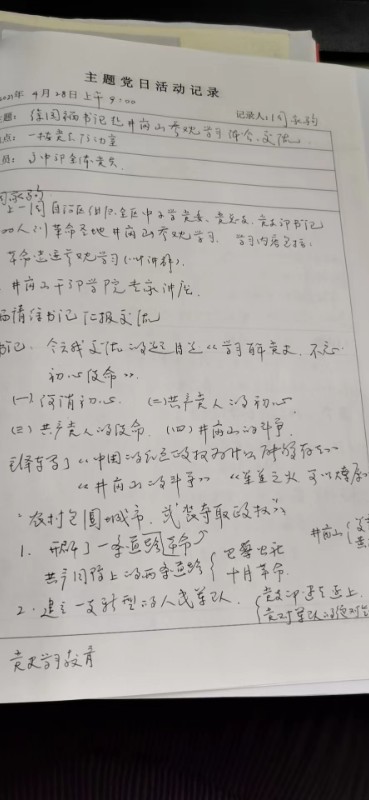 主题党日活动记录
2021年4月28日上午9:00
记录人:周
题: 书记赴井冈山参观学习体会交流
点: 一楼党员活动室
员: 支部全体党员
上一周自治区组织全区中小学党委、党总支、党支部书记
00人到革命圣地井冈山参观学习. 学习内容包括:
革命遗迹参观学习(听讲解).
井冈山干部学院专家讲座.
请徐书记汇报交流
书记: 今天我交流的题目是《学习百年党史、不忘
初心使命》.
(一)何谓初心 (二)共产党人的初心
(三)共产党人的使命 (四)井冈山的斗争
毛泽东写了《中国的红色政权为什么能够存在》
《井冈山的斗争》 《星星之火 可以燎原》
"农村包围城市、武装夺取政权"
1. 开辟了一条道路革命
井冈山
共产国际上的两条道路 巴黎公社
十月革命.
2. 建立一支新型的人民军队. 党支部建在连上.
党对军队的绝对
党史学习教育